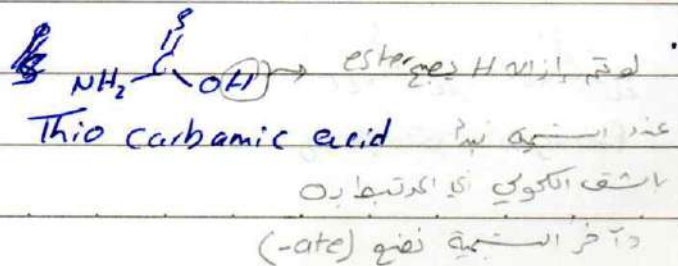 S
NH₂ C OH → لو تم إزالة H يصبح ester
Thio carbamic acid عند التسمية نبدأ
بالشق الكحولي أي المرتبط بـ O
وآخر التسمية نضع (-ate)